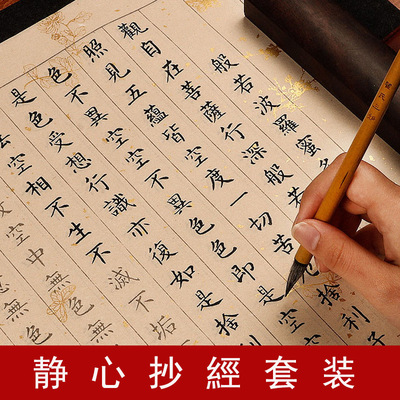 般若波羅蜜多
觀自在菩薩行深般若
照見五蘊皆空度一切苦
捨利子
色不異空空不異色色即是空
是色受想行識亦復如是捨利
空相不生不滅不垢
空中無色無
静心抄經套装